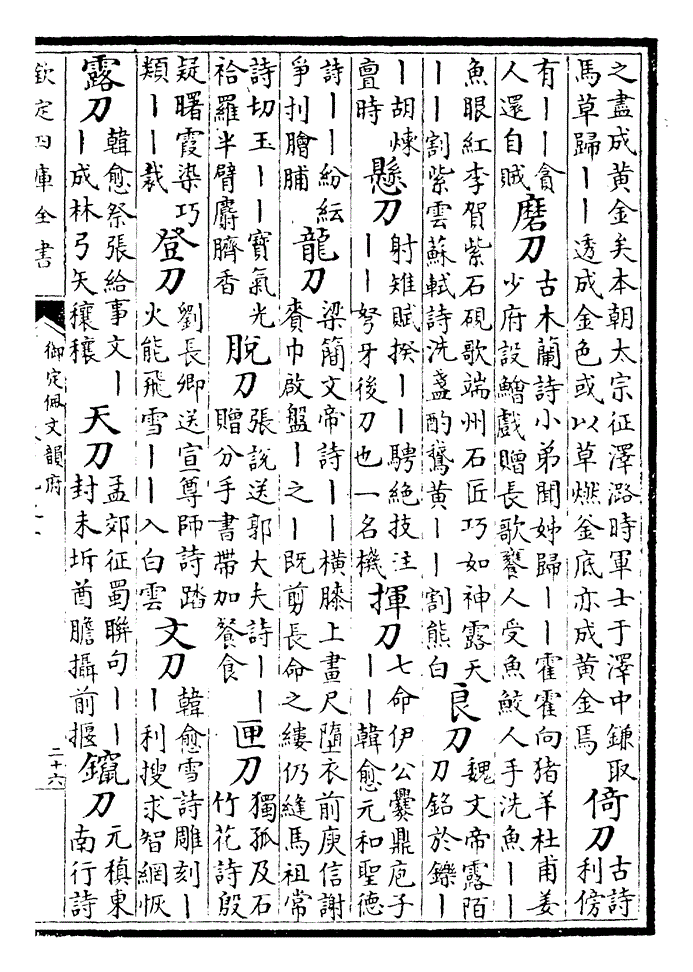 之盡成黄金矣本朝太宗征澤潞時軍士于澤中鎌取
馬草歸丨丨透成金色或以草燃釜底亦成黄金焉
倚刀
古詩
利傍
有丨丨貪
人還自賊
磨刀
古木蘭詩小弟聞姊歸丨丨霍霍向猪羊杜甫姜
少府設鱠戲贈長歌饔人受魚鮫人手洗魚丨丨
魚眼紅李賀紫石硯歌端州石匠巧如神露天
丨丨割紫雲蘇軾詩洗盞酌鵞黄丨丨割熊白
良刀
魏文帝露陌
刀銘於鑠丨
丨胡煉
亶時
懸刀
射雉賦揆丨丨騁絶技注
丨丨弩牙後刀也一名機
揮刀
七命伊公爨鼎庖子
丨丨韓愈元和聖德
詩丨丨紛紜
爭刌膾脯
龍刀
梁簡文帝詩丨丨横膝上畫尺墮衣前庾信謝
賚巾啟盤丨之丨既剪長命之縷仍縫馬祖常
詩切玉丨丨寳氣光
袷羅半臂麝臍香
脱刀
張説送郭大夫詩丨丨
贈分手書帶加餐食
匣刀
獨孤及石
竹花詩殷
疑曙霞染巧
類丨丨裁
登刀
劉長卿送宣尊師詩踏
火能飛雪丨丨入白雲
文刀
韓愈雪詩雕刻丨
丨利搜求智網恢
露刀
韓愈祭張給事文丨
丨成林弓矢穰穰
天刀
孟郊征蜀聯句丨丨
封未坼酋膽攝前揠
鑹刀
元稹東
南行詩
欽定四庫全書
御定佩文韻府
二十六